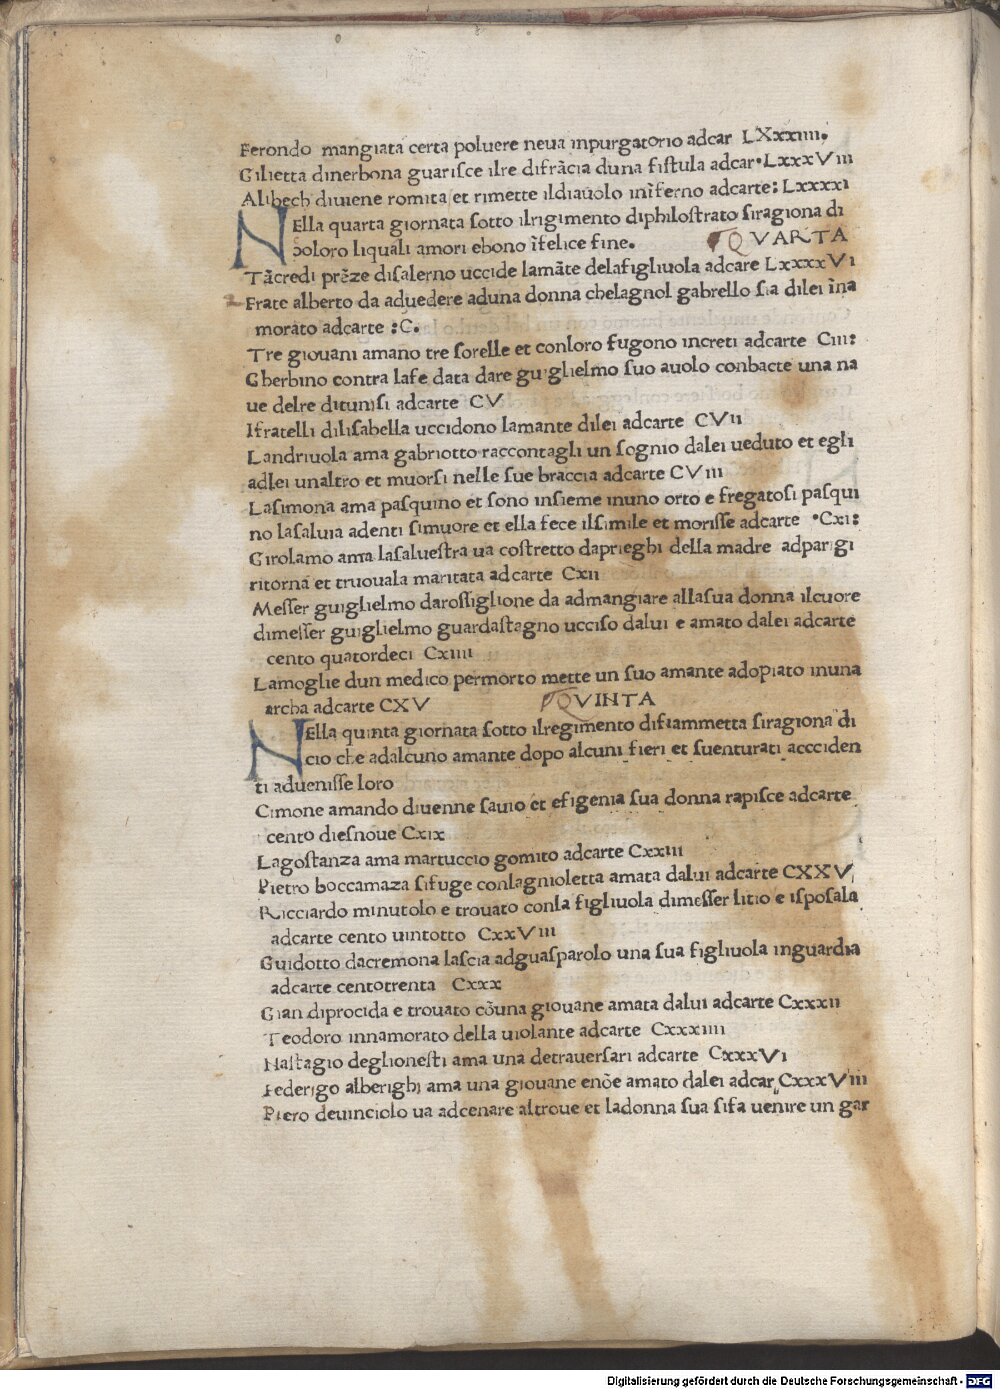 Ferondo mangiata certa poluere neua inpurgatorio adcar LXxxiiii.
Gilietta dinerbona guarisce ilre difrācia duna fistula adcar•LxxxViii
Alibech diuiene romita et rimette ildiauolo inīferno adcarte: Lxxxxi
NElla quarta giornata sotto ilrigimento diphilostrato siragiona di
coloro liquali amori ebono īfelice fine. QVARTA
Tācredi prēze disalerno uccide lamāte delafigliuola adcare LxxxxVi
Frate alberto da aduedere aduna donna chelagnol gabrello sia dilei īna
morato adcarte :C.
Tre giouani amano tre sorelle et conloro fugono increti adcarte Ciii:
Gherbino contra lafe data dare guiglielmo suo auolo conbacte una na
ue delre ditunisi adcarte CV
Ifratelli dilisabella uccidono lamante dilei adcarte CVii
Landriuola ama gabriotto raccontagli un sognio dalei ueduto et egli
adlei unaltro et muorsi nelle sue braccia adcarte CViii
Lasimona ama pasquino et sono insieme inuno orto e fregatosi pasqui
no lasaluia adenti simuore et ella fece ilsimile et morisse adcarte •Cxi:
Girolamo ama lasaluestra ua costretto daprieghi della madre adparigi
ritorna et truouala maritata adcarte Cxii
Messer guiglielmo darossiglione da admangiare allasua donna ilcuore
dimesser guiglielmo guardastagno ucciso dalui e amato dalei adcarte
cento quatordeci Cxiiii
Lamoglie dun medico permorto mette un suo amante adopiato inuna
archa adcarte CXV QVINTA
NElla quinta giornata sotto ilregimento difiammetta siragiona di
cio che adalcuno amante dopo alcuni fieri et suenturati accciden
ti aduenisse loro
Cimone amando diuenne sauio et efigenia sua donna rapisce adcarte
cento diesnoue Cxix
Lagostanza ama martuccio gomito adcarte Cxxiii
Pietro boccamaza sifuge conlagnioletta amata dalui adcarte CXXV
Ricciardo minutolo e trouato conla figliuola dimesser litio e isposala
adcarte cento uintotto CxxViii
Guidotto dacremona lascia adguasparolo una sua figliuola inguardia
adcarte centotrenta Cxxx
Gian diprocida e trouato cōuna giouane amata dalui adcarte Cxxxii
Teodoro innamorato della uiolante adcarte Cxxxiiii
Nastagio deglionesti ama una detrauersari adcarte CxxxVi
Federigo alberighi ama una giouane enōe amato dalei adcar CxxxViii
Piero deuinciolo ua adcenare altroue et ladonna sua sifa uenire un gar
Digitalisierung gefördert durch die Deutsche Forschungsgemeinschaft - DFG